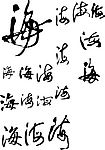 海 海 海 海
海 海
海
海 海 海 海
海 海 海 海
海 海 海